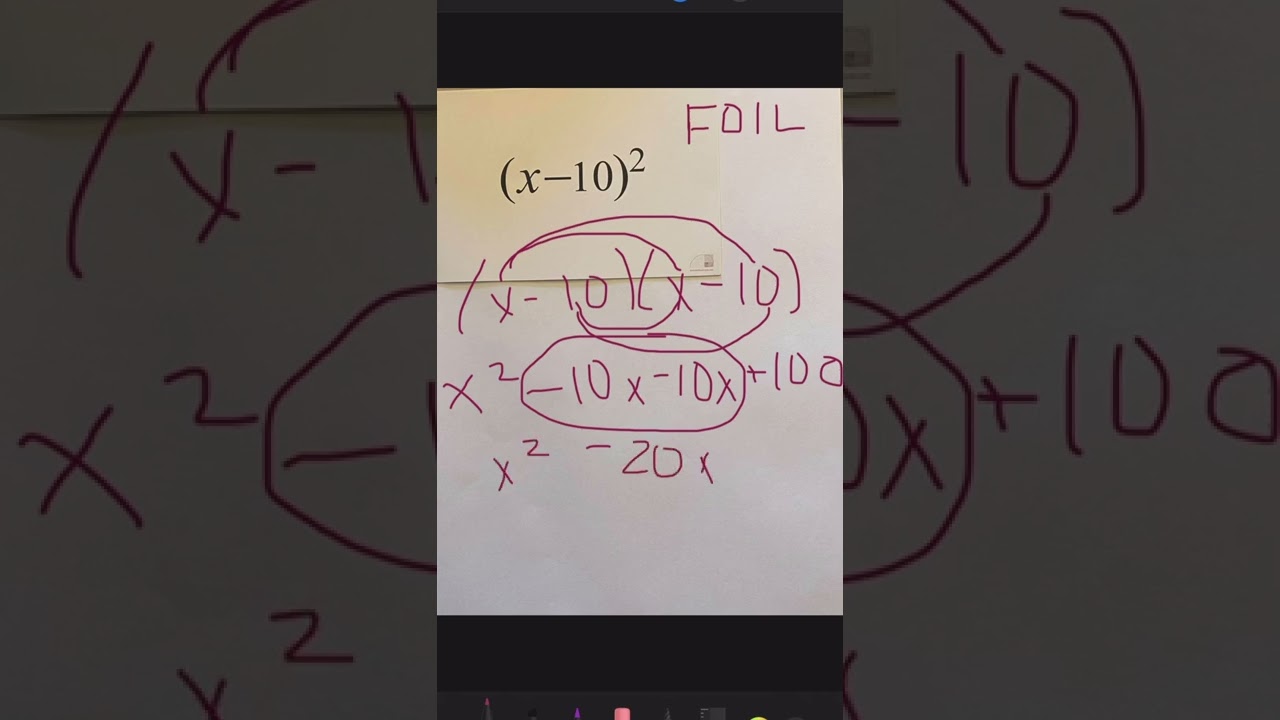 FOIL
(x−10)²
(x - 10)(x - 10)
x² -10x -10x +100
x² - 20x